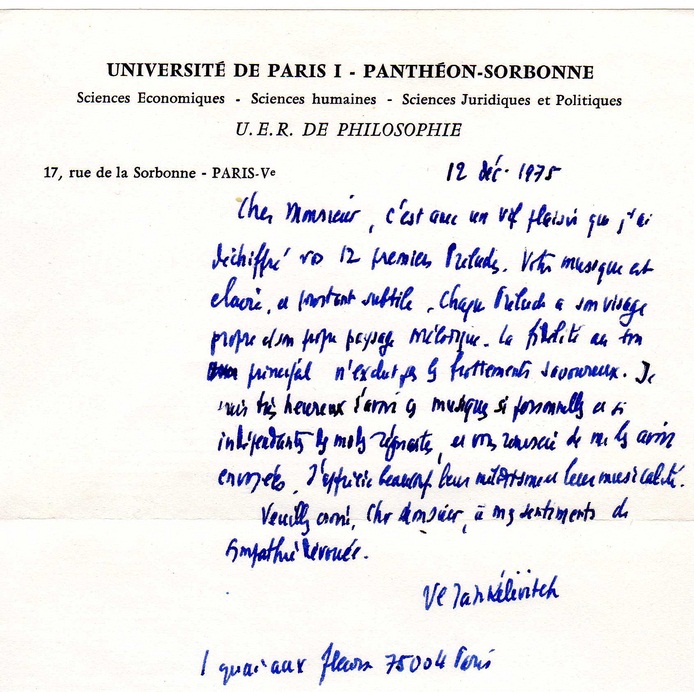 UNIVERSITÉ DE PARIS I - PANTHÉON-SORBONNE
Sciences Economiques - Sciences humaines - Sciences Juridiques et Politiques
U.E.R. DE PHILOSOPHIE
17, rue de la Sorbonne - PARIS-Vᵉ
12 déc. 1975
Cher Monsieur, c'est avec un vif plaisir que j'ai
déchiffré vos 12 premiers Préludes. Votre musique est
claire, et pourtant subtile. Chaque Prélude a son visage
propre et son propre paysage mélodique. La fidélité au ton
principal n'exclut pas les frottements savoureux. Je
suis très heureux d'avoir ces musiques si personnelles et si
indépendantes des modes régnantes, et vous remercie de me les avoir
envoyées. J'apprécie beaucoup leur et leur musicalité.
Veuillez croire, cher Monsieur, à mes sentiments de
sympathie dévouée.
Vl Jankélévitch
1 quai aux fleurs 75004 Paris